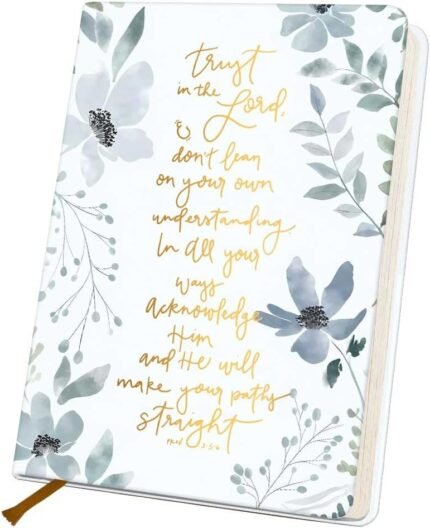 trust
in the Lord,
& don't lean
on your own
understanding
In all your
ways
acknowledge
Him
and He will
make your paths
straight
PROV 3:5-6